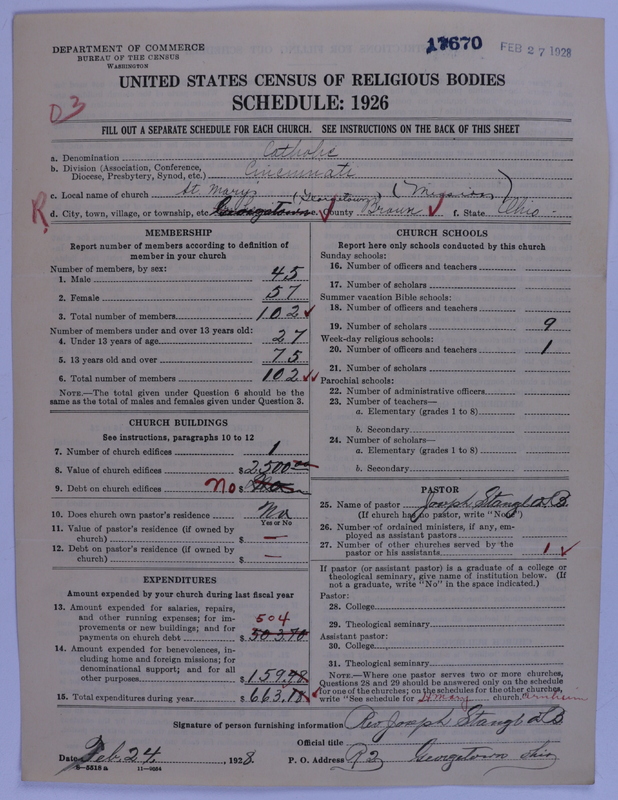 DEPARTMENT OF COMMERCE
BUREAU OF THE CENSUS
WASHINGTON
17670 FEB 27 1928
UNITED STATES CENSUS OF RELIGIOUS BODIES
SCHEDULE: 1926
D3
FILL OUT A SEPARATE SCHEDULE FOR EACH CHURCH. SEE INSTRUCTIONS ON THE BACK OF THIS SHEET
a. Denomination Catholic
b. Division (Association, Conference,
Diocese, Presbytery, Synod, etc.) Cincinnati
c. Local name of church St. Marys (Georgetown) (Mission)
R d. City, town, village, or township, etc. Georgetown e. County Brown f. State Ohio
MEMBERSHIP
Report number of members according to definition of
member in your church
Number of members, by sex:
1. Male 45
2. Female 57
3. Total number of members 102
Number of members under and over 13 years old:
4. Under 13 years of age 27
5. 13 years old and over 75
6. Total number of members 102
NOTE.—The total given under Question 6 should be
same as the total of males and females given under Question 3.
CHURCH BUILDINGS
See instructions, paragraphs 10 to 12
7. Number of church edifices 1
8. Value of church edifices $2,500.00
9. Debt on church edifices No $
10. Does church own pastor's residence? No
Yes or No
11. Value of pastor's residence (if owned by
church) $ —
12. Debt on pastor's residence (if owned by
church) $ —
EXPENDITURES
Amount expended by church during last fiscal year
13. Amount expended for salaries, repairs,
and other running expenses; for im-
provements or new buildings; and for
payments on church debt 504 $ 503.40
14. Amount expended for benevolences, in-
cluding home and foreign missions; for
denominational support; and for all
other purposes $ 159.78
15. Total expenditures during year $ 663.18
CHURCH SCHOOLS
Report here only schools conducted by this church
Sunday schools:
16. Number of officers and teachers
17. Number of scholars
Summer vacation Bible schools:
18. Number of officers and teachers
19. Number of scholars 9
Week-day religious schools:
20. Number of officers and teachers 1
21. Number of scholars
Parochial schools:
22. Number of administrative officers
23. Number of teachers—
a. Elementary (grades 1 to 8)
b. Secondary
24. Number of scholars—
a. Elementary (grades 1 to 8)
b. Secondary
PASTOR
25. Name of pastor Joseph Stangl
(If church has no pastor, write "None")
26. Number of ordained ministers, if any, em-
ployed as assistant pastors
27. Number of other churches served by the
pastor or his assistants 1
If pastor (or assistant pastor) is a graduate of a college or
theological seminary, give name of institution below. (If
not a graduate, write "No" in the space indicated.)
Pastor:
28. College
29. Theological seminary
Assistant pastor:
30. College
31. Theological seminary
NOTE.—Where one pastor serves two or more churches,
Questions 28 and 29 should be answered only on the schedule
for one of the churches; on the schedules for the other churches,
write "See schedule for St Mary church. Arnheim
Signature of person furnishing information Rev. Joseph Stangl
Official title
Date Feb. 24, 1928. P. O. Address R 2 Georgetown Ohio
8-5518 a 11-9564